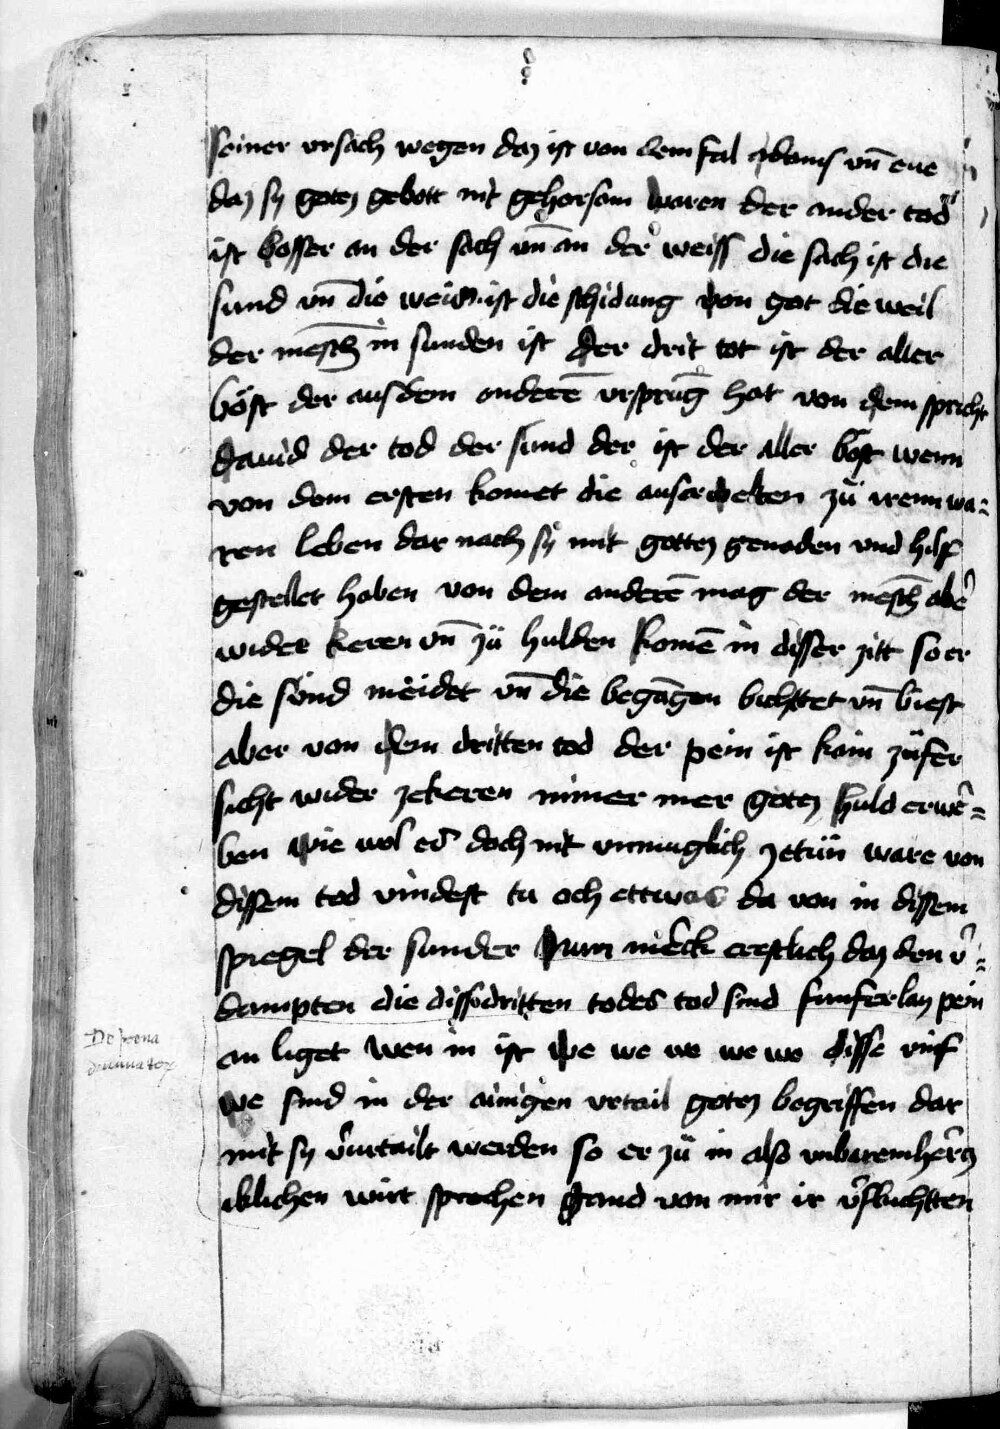 seiner vrsach wegen daz ist von dem fal adams vn̄ eue
daz sy gotz gebott nit gehorsam waren der ander tod
ist bosser an der sach vn̄ an der weiss die sach ist die
sund vn̄ die weis ist die schidung von got die weil
der mesch̄ in sunden ist der drit tot ist der aller
böst der aus dem anderē vrsprūg hat von dem spricht
dauid der tod der sund der ist der aller böst wenn
von dem ersten komet die auserwelten zů irem wa=
ren leben dar nach sy mit gottez genaden vnd hilf
gestellet haben von dem anderē mag der mesch̄ abe᷑
wider keren vn̄ zů hulden komē in disser zitt so er
die sünd meidet vn̄ die begāgen bichttet vn̄ biest
aber von dem dritten tod der pein ist kain zůfer
sicht wider zekeren nimer mer gotez huld erwe᷑=
ben wie wol es doch nit vnmuglich zetün ware von
dissem tod vindest tu och ettwas da von in dissem
spiegel der sunder Nun me᷑ck erestlich daz den v᷑=
dampten die diss dritten todes tod sind funferlay pein
an liget wen in ist we we we we we disse vinf
we sind in der ainigen vrtail gotez begriffen dar
mit sy v᷑urtailt werden so er zů in also vnbaremhe᷑tz
iklichen wirt sprechen gand von mir ir v᷑fluchtten
De pena